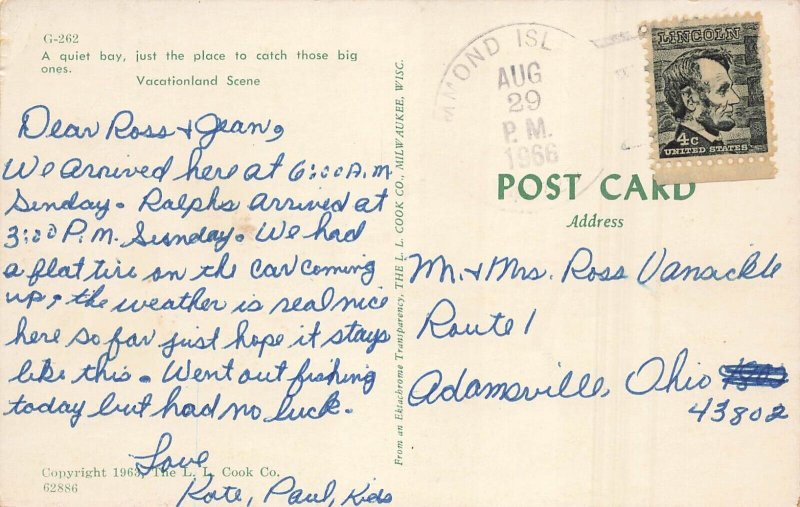 G-262
A quiet bay, just the place to catch those big
ones.
Vacationland Scene
Dear Ross & Jean,
We arrived here at 6:00 A.M.
Sunday. Ralphs arrived at
3:00 P.M. Sunday. We had
a flat tire on the car coming
up, the weather is real nice
here so far just hope it stays
like this. Went out fishing
today but had no luck.
Love
Kate, Paul, Kids
Copyright 1963, The L. L. Cook Co.
62886
From an Ektachrome Transparency, THE L. L. COOK CO., MILWAUKEE, WISC.
MMOND ISL
AUG
29
P.M.
1966
LINCOLN
4c
UNITED STATES
POST CARD
Address
Mr. & Mrs. Ross Vanackle
Route 1
Adamsville, Ohio
43802